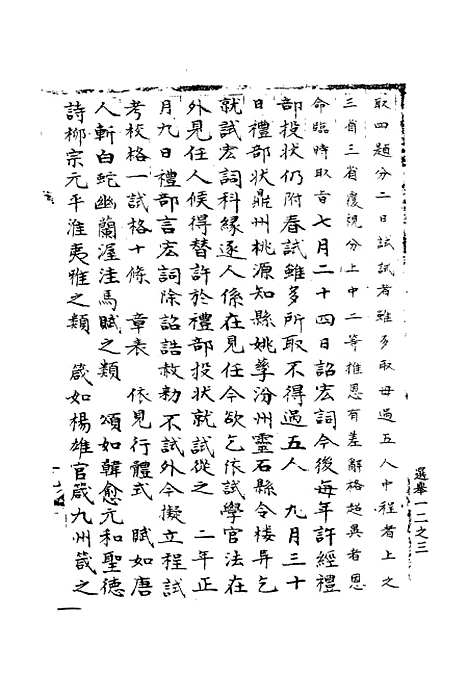 選舉一二之三
取四題分二日試試者雖多取毋過五人中程者上之
三省三省覆視分上中二等推恩有差辭格超異者恩
命臨時取旨七月二十四日詔宏詞今後每年許經禮
部投狀仍附春試雖多所取不得過五人　九月三十
日禮部狀鼎州桃源知縣姚孳汾州靈石縣令樓异乞
就試宏詞科緣逐人係在見任今欲乞依試學官法在
外見任人候得替許於禮部投狀就試從之　二年正
月九日禮部言宏詞除詔誥赦勑不試外今擬立程試
考校格一試格十條　章表　依見行體式　賦如唐
人斬白蛇幽蘭渥洼馬賦之類　頌如韓愈元和聖德
詩柳宗元平淮夷雅之類　箴如楊雄官箴九州箴之